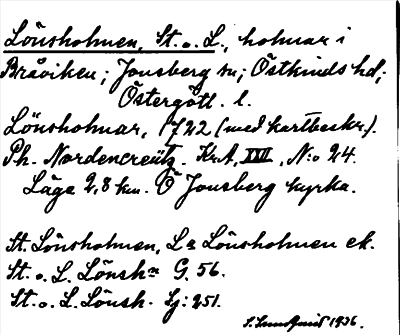 Lönsholmen, St. o. L., holmar i
Bråviken; Jonsberg sn; Östkinds hd;
Östergötl. l.
Lönsholmar, 1722 (med kartbeskr.).
Ph. Nordencreütz. Kr.A, XVII, N:o 24.
Läge 2,8 km. Ö Jonsberg kyrka.
St. Lönsholmen, L:a Lönsholmen ek.
St. o. L. Lönsh:n G. 56.
St. o. L. Lönsh. Sj: 251.
S. Sundquist 1936.